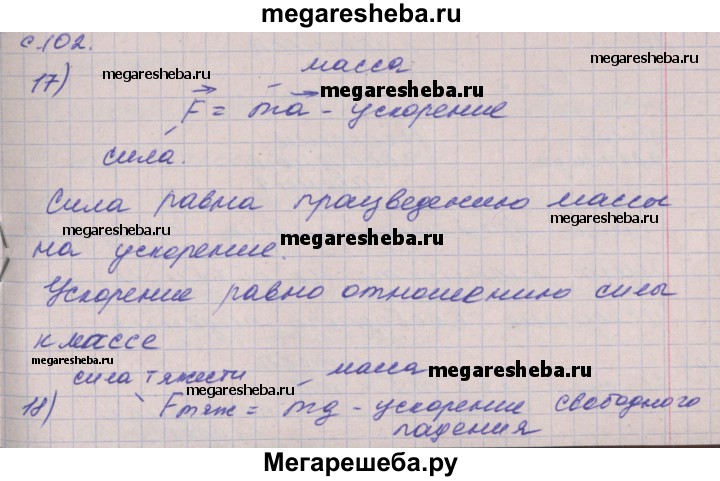 megaresheba.ru
с.102.
megaresheba.ru масса megaresheba.ru
17) megaresheba.ru
F = ma - ускорение
сила.
Сила равна працведению массы
megaresheba.ru megaresheba.ru
на ускорение. megaresheba.ru
Ускорение равно отношению силы
к массе
megaresheba.ru
сила тяжести масса megaresheba.ru
18) Fтяж = mg - ускорение свободного
падения
megaresheba.ru megaresheba.ru
Мегарешеба.ру